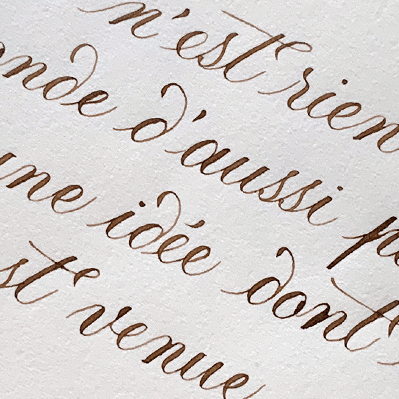 n'est rien
onde d'aussi p
une idée dont
st venue